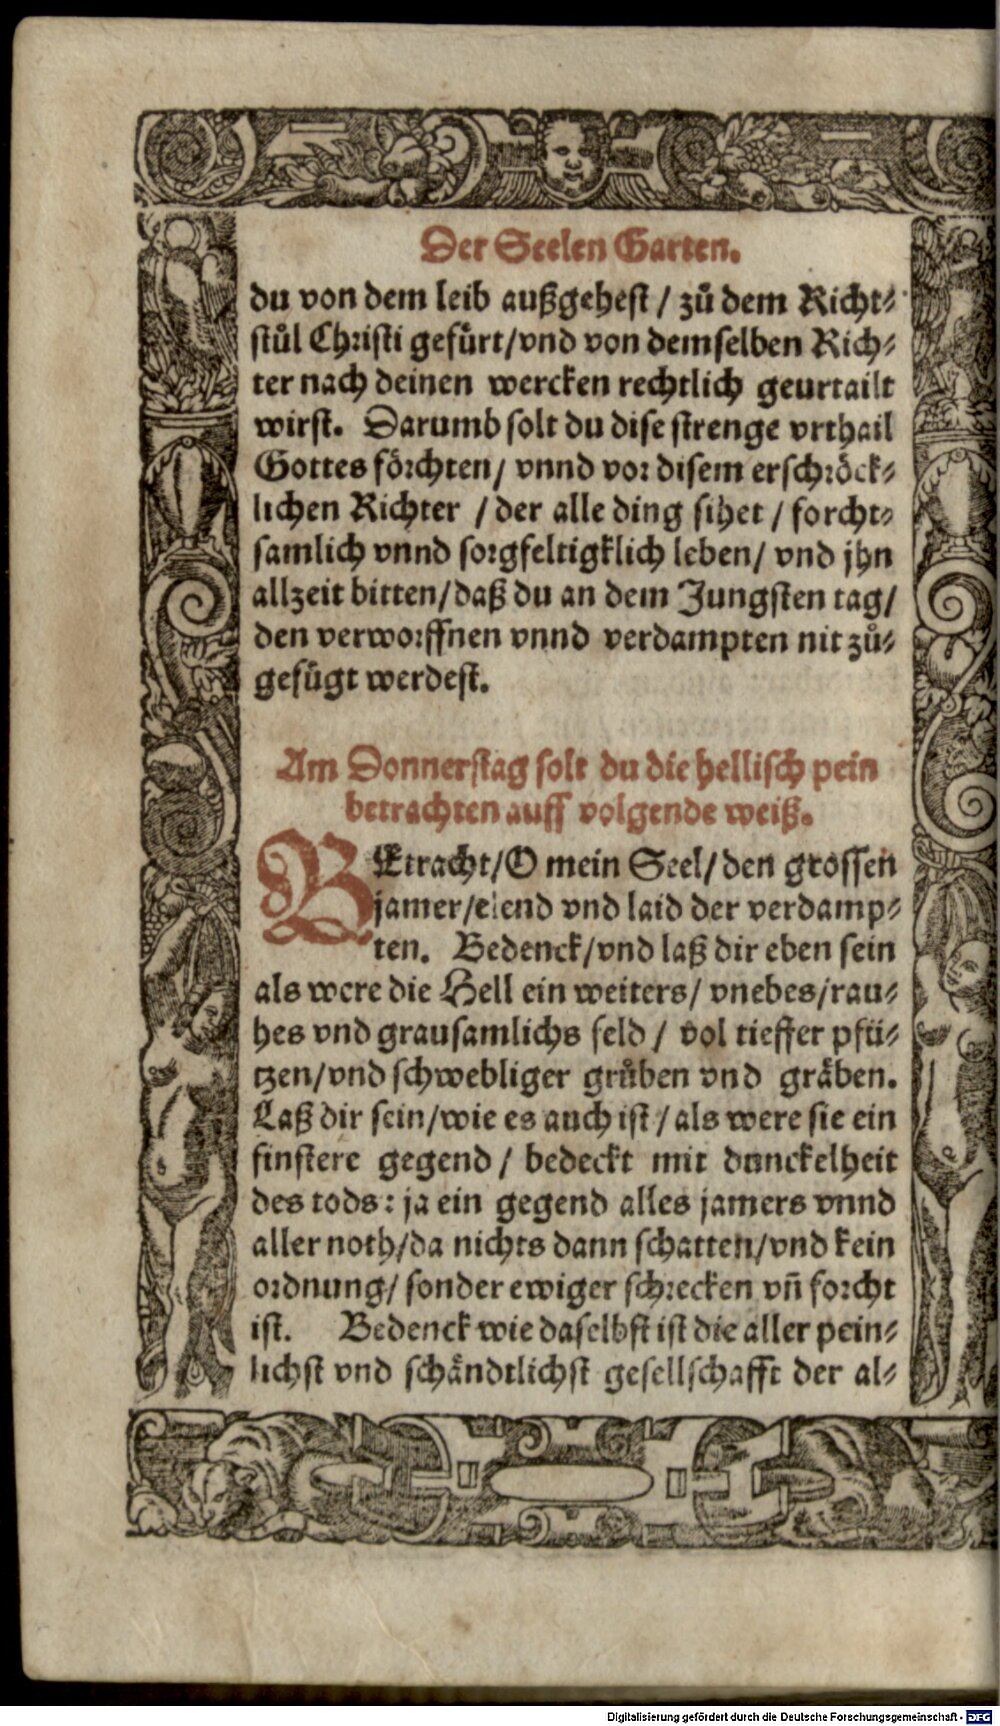 Der Seelen Garten.
du von dem leib außgehest / zů dem Richt⸗
stůl Christi gefürt/vnd von demselben Rich⸗
ter nach deinen wercken rechtlich geurtailt
wirst. Darumb solt du dise strenge vrthail
Gottes förchten/ vnnd vor disem erschröck⸗
lichen Richter / der alle ding sihet / forcht⸗
samlich vnnd sorgfeltigklich leben/ vnd jhn
allzeit bitten/daß du an dem Jungsten tag/
den verworffnen vnnd verdampten nit zů⸗
gefügt werdest.
Am Donnerstag solt du die hellisch pein
betrachten auff volgende weiß.
BEtracht/O mein Seel/den grossen
jamer/elend vnd laid der verdamp⸗
ten. Bedenck/vnd laß dir eben sein
als were die Hell ein weiters/ vnebes/rau⸗
hes vnd grausamlichs feld / vol tieffer pfü⸗
tzen/vnd schwebliger grůben vnd gräben.
Laß dir sein/wie es auch ist/als were sie ein
finstere gegend / bedeckt mit dunckelheit
des tods: ja ein gegend alles jamers vnnd
aller noth/da nichts dann schatten/vnd kein
ordnung/ sonder ewiger schrecken vñ forcht
ist. Bedenck wie daselbst ist die aller pein⸗
lichst vnd schändtlichst gesellschafft der al⸗
Digitalisierung gefördert durch die Deutsche Forschungsgemeinschaft - DFG